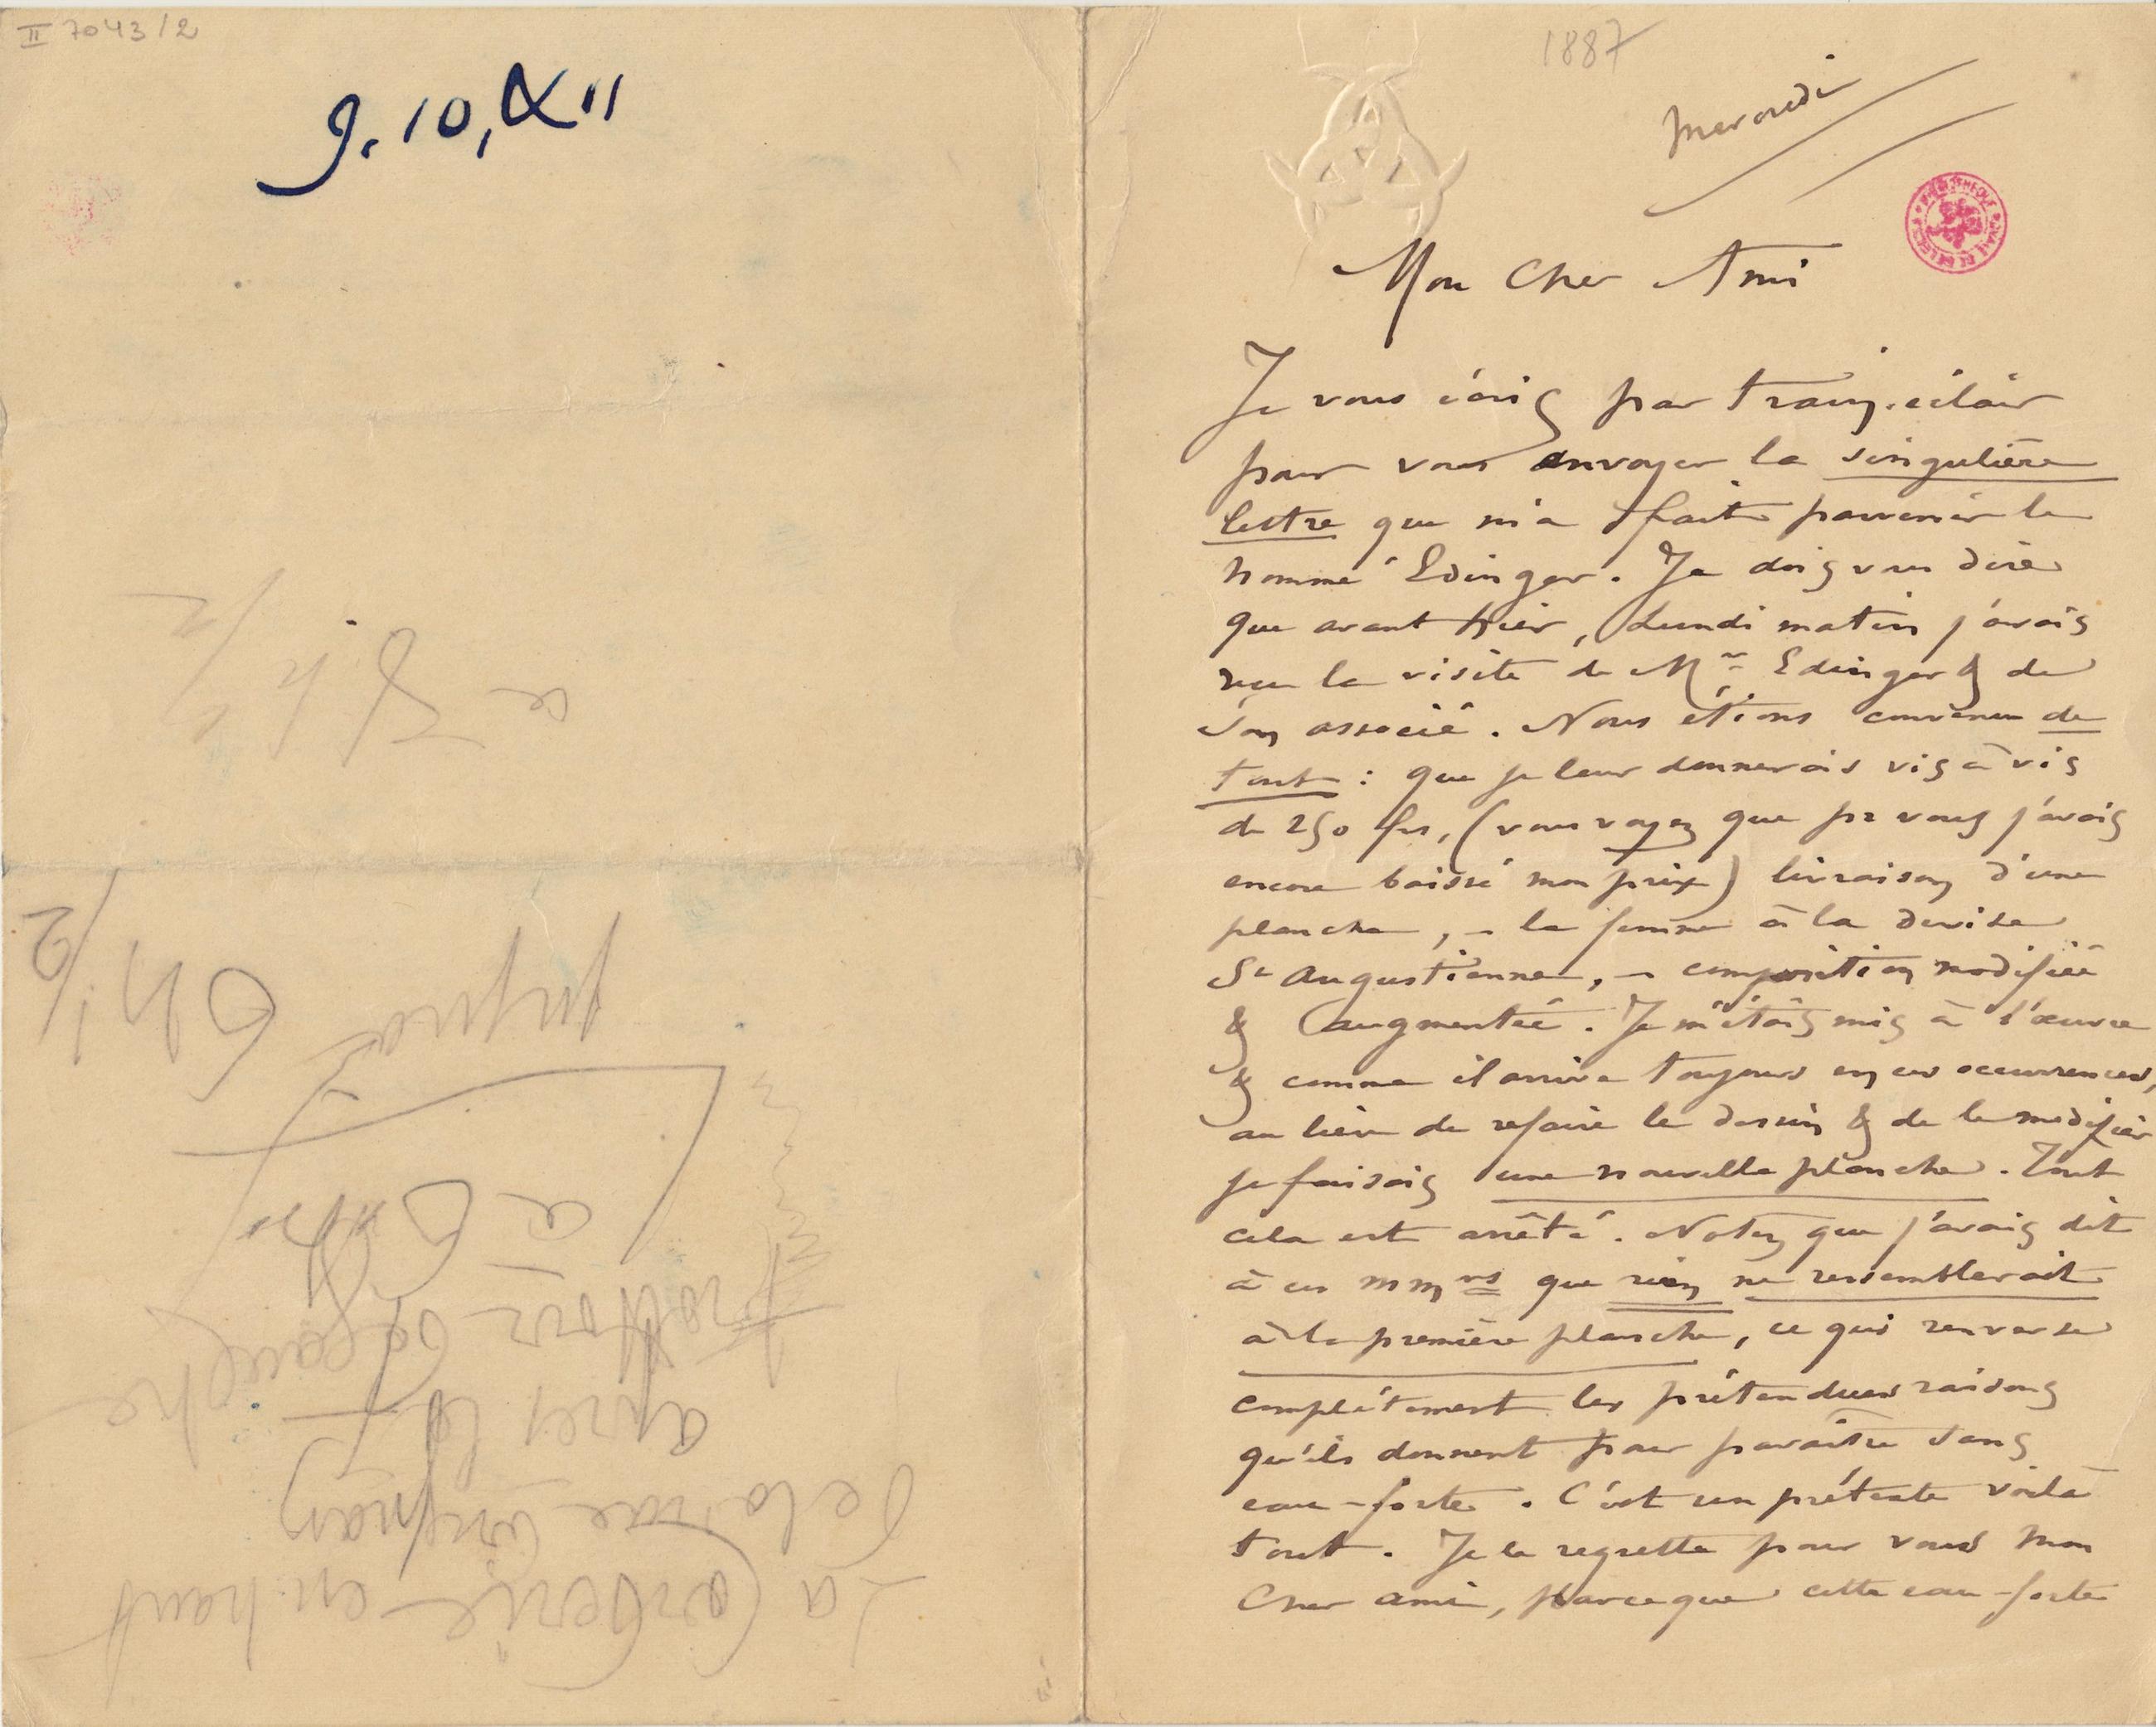 II 7043/2
9.10, XII
6 h 1/2
La Corderie en haut
de la rue
après le
trottoir de gauche
à 6 h
1887
Mercredi
Mon Cher Ami
Je vous écris par train-éclair
pour vous envoyer la singulière
lettre que m'a fait parvenir le
nommé Edinger. Je dois vous dire
que avant hier, Lundi matin j'avais
reçu la visite de Mr Edinger & de
son associé. Nous étions convenu de
tout : que je leur donnerais vis à vis
de 250 frs, (vous voyez que pr vous j'avais
encore baissé mon prix) livraison d'une
planche, – la femme à la devise
St Augustienne, – composition modifiée
& augmentée. Je m'étais mis à l'œuvre
& comme il arrive toujours en ces occurrences,
au lieu de refaire le dessin & de le modifier
je faisais une nouvelle planche. Tout
cela est arrêté. Notez que j'avais dit
à ces mmrs que rien ne ressemblerait
à la première planche, ce qui renverse
complètement les prétendues raisons
qu'ils donnent pour paraître sans
eau-forte. C'est un prétexte voilà
tout. Je le regrette pour vous mon
Cher ami, parceque cette eau-forte